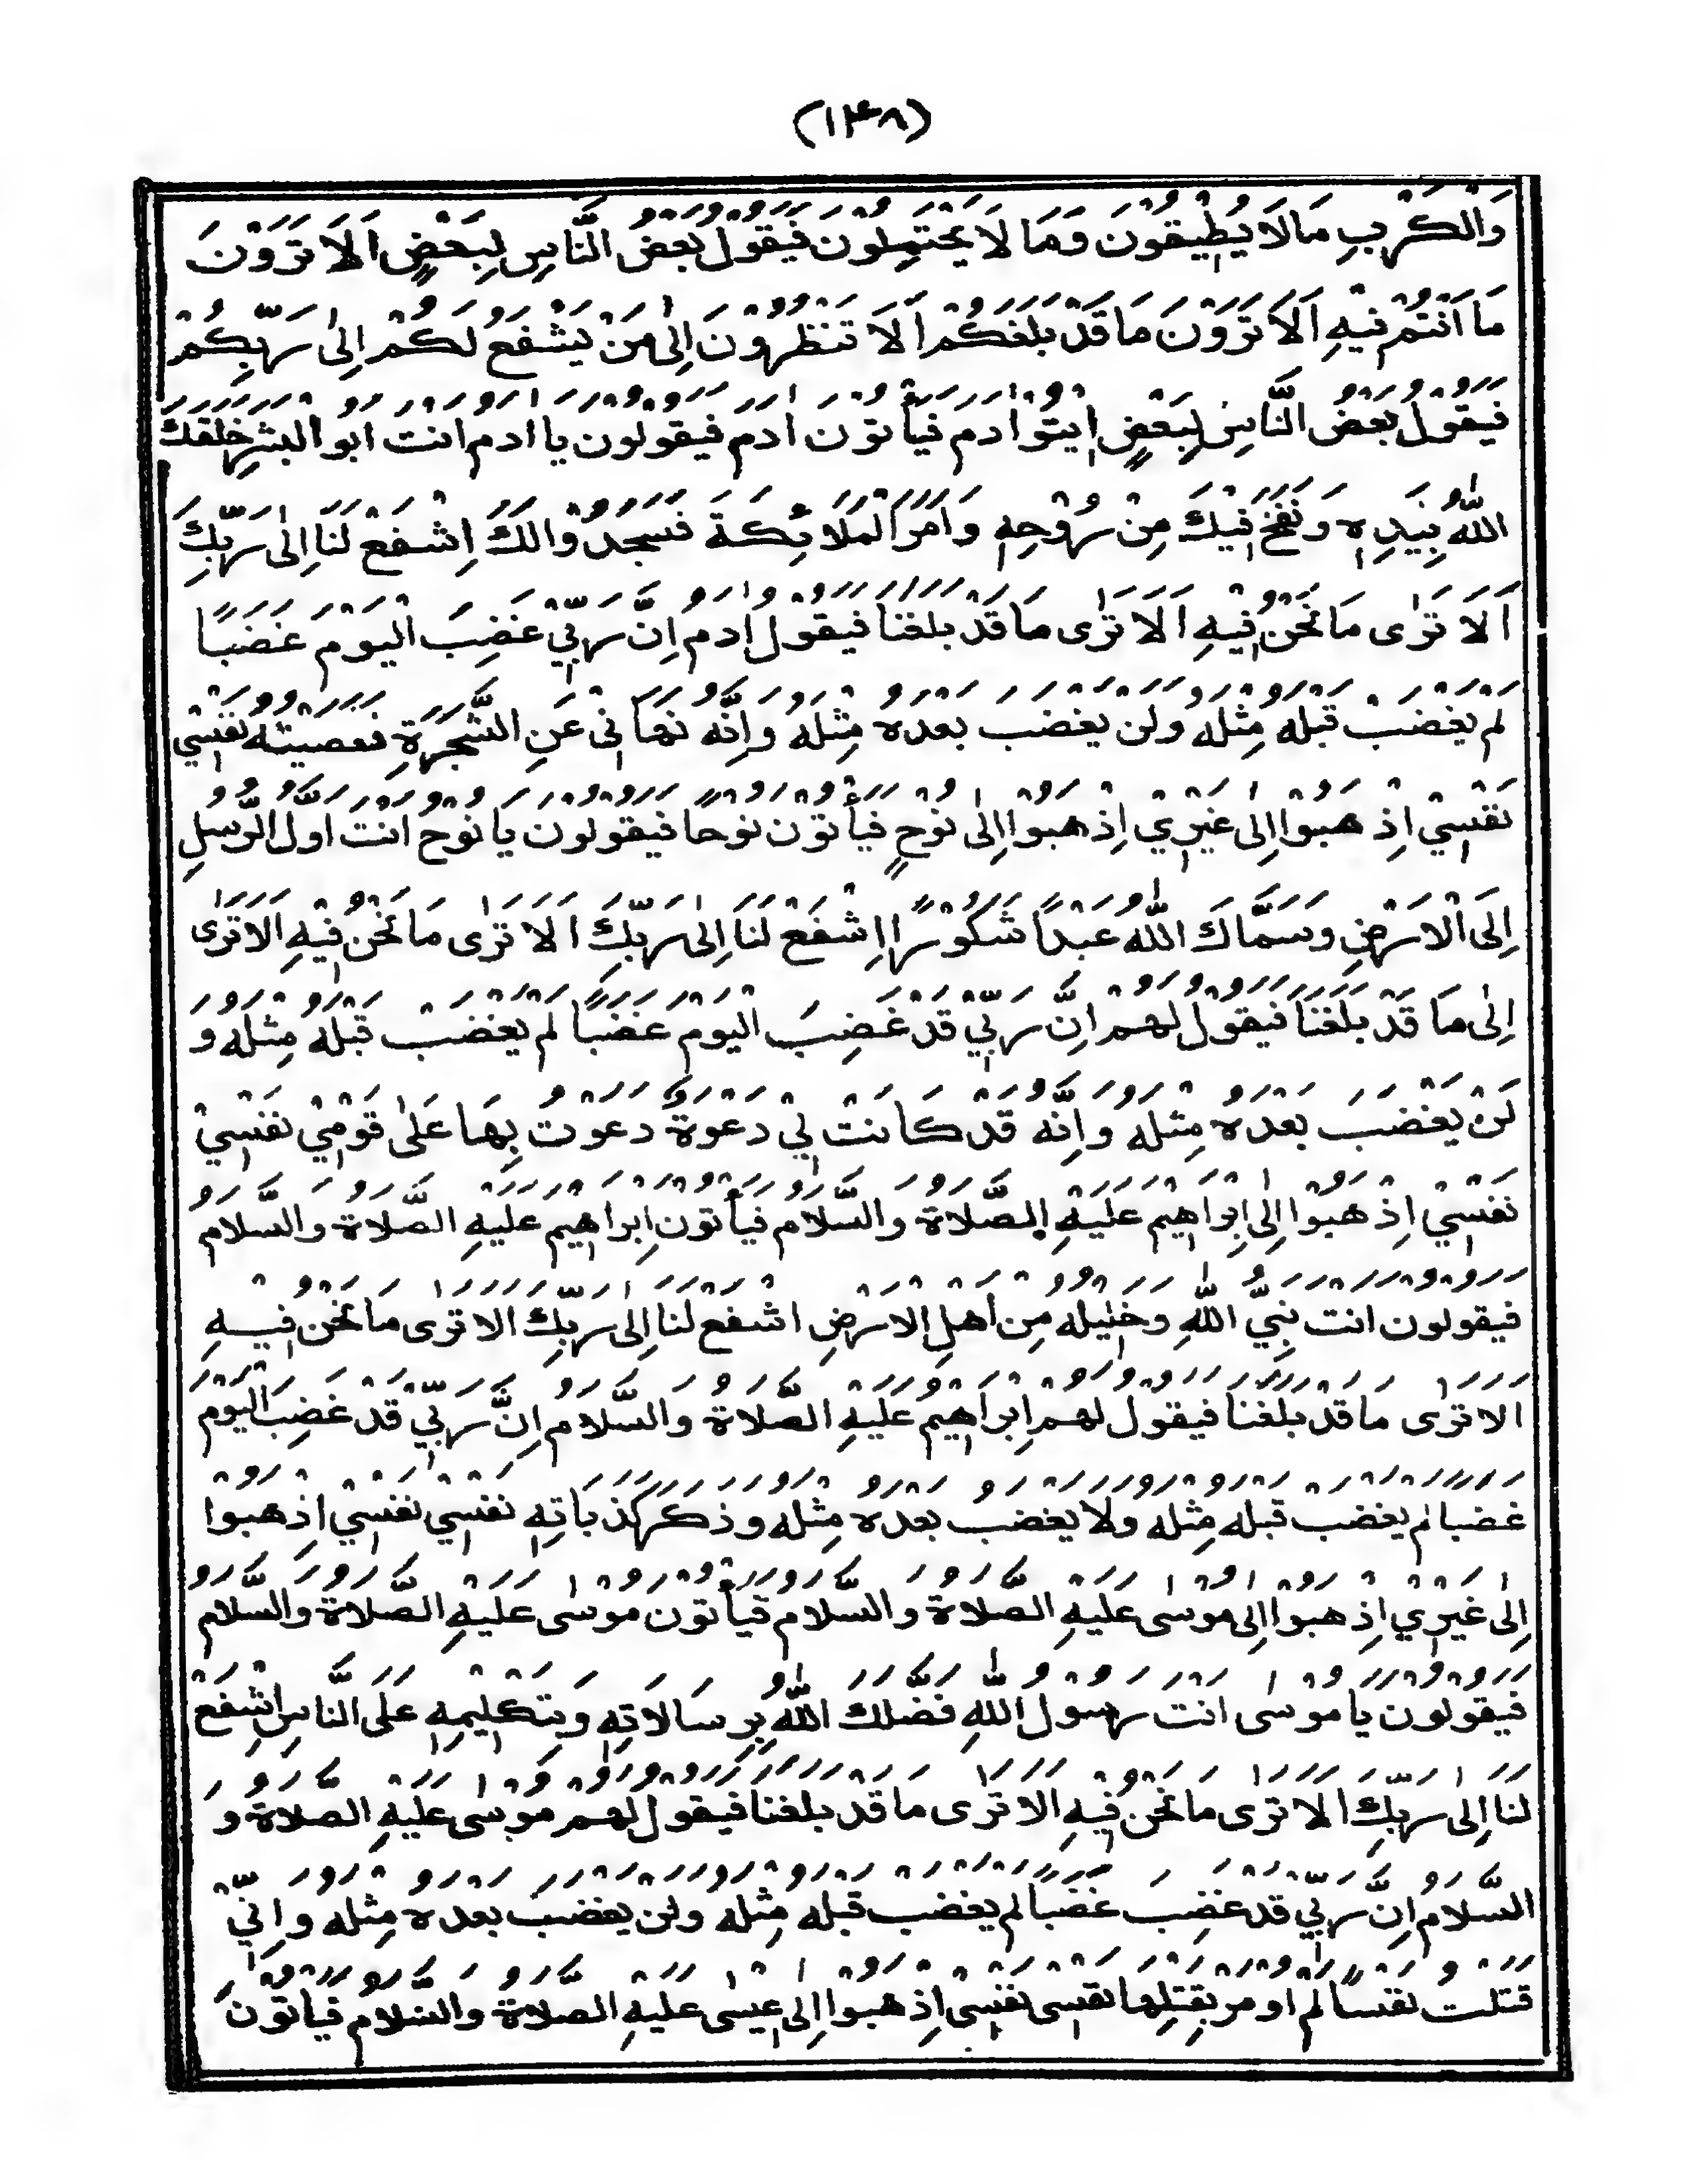 (۱۴۸)
وَالْكَرْبِ مَالَا يُطِيْقُوْنَ وَمَا لَا يَحْتَمِلُوْنَ فَيَقُوْلُ بَعْضُ النَّاسِ لِبَعْضٍ اَلَا تَرَوْنَ
مَا اَنْتُمْ فِيْهِ اَلَا تَرَوْنَ مَا قَدْ بَلَغَكُمْ اَلَا تَنْظُرُوْنَ اِلٰى مَنْ يَشْفَعُ لَكُمْ اِلٰى رَبِّكُمْ
فَيَقُوْلُ بَعْضُ النَّاسِ لِبَعْضٍ اِيْتُوْا اٰدَمَ فَيَأْتُوْنَ اٰدَمَ فَيَقُوْلُوْنَ يَا اٰدَمُ اَنْتَ اَبُو الْبَشَرِ خَلَقَكَ
اللّٰهُ بِيَدِهٖ وَنَفَخَ فِيْكَ مِنْ رُوْحِهٖ وَاَمَرَ الْمَلَائِكَةَ فَسَجَدُوْا لَكَ اِشْفَعْ لَنَا اِلٰى رَبِّكَ
اَلَا تَرٰى مَا نَحْنُ فِيْهِ اَلَا تَرٰى مَا قَدْ بَلَغَنَا فَيَقُوْلُ اٰدَمُ اِنَّ رَبِّيْ غَضِبَ الْيَوْمَ غَضَبًا
لَمْ يَغْضَبْ قَبْلَهُ مِثْلَهُ وَلَنْ يَغْضَبَ بَعْدَهُ مِثْلَهُ وَاِنَّهُ نَهَانِيْ عَنِ الشَّجَرَةِ فَعَصَيْتُهُ نَفْسِيْ
نَفْسِيْ اِذْهَبُوْا اِلٰى غَيْرِيْ اِذْهَبُوْا اِلٰى نُوْحٍ فَيَأْتُوْنَ نُوْحًا فَيَقُوْلُوْنَ يَا نُوْحُ اَنْتَ اَوَّلُ الرُّسُلِ
اِلَى الْاَرْضِ وَسَمَّاكَ اللّٰهُ عَبْدًا شَكُوْرًا اِشْفَعْ لَنَا اِلٰى رَبِّكَ اَلَا تَرٰى مَا نَحْنُ فِيْهِ اَلَا تَرٰى
اِلٰى مَا قَدْ بَلَغَنَا فَيَقُوْلُ لَهُمْ اِنَّ رَبِّيْ قَدْ غَضِبَ الْيَوْمَ غَضَبًا لَمْ يَغْضَبْ قَبْلَهُ مِثْلَهُ وَ
لَنْ يَغْضَبَ بَعْدَهُ مِثْلَهُ وَاِنَّهُ قَدْ كَانَتْ لِيْ دَعْوَةٌ دَعَوْتُ بِهَا عَلٰى قَوْمِيْ نَفْسِيْ
نَفْسِيْ اِذْهَبُوْا اِلٰى اِبْرَاهِيْمَ عَلَيْهِ الصَّلَاةُ وَالسَّلَامُ فَيَأْتُوْنَ اِبْرَاهِيْمَ عَلَيْهِ الصَّلَاةُ وَالسَّلَامُ
فَيَقُوْلُوْنَ اَنْتَ نَبِيُّ اللّٰهِ وَخَلِيْلُهُ مِنْ اَهْلِ الْاَرْضِ اشْفَعْ لَنَا اِلٰى رَبِّكَ اَلَا تَرٰى مَا نَحْنُ فِيْهِ
اَلَا تَرٰى مَا قَدْ بَلَغَنَا فَيَقُوْلُ لَهُمْ اِبْرَاهِيْمُ عَلَيْهِ الصَّلَاةُ وَالسَّلَامُ اِنَّ رَبِّيْ قَدْ غَضِبَ الْيَوْمَ
غَضَبًا لَمْ يَغْضَبْ قَبْلَهُ مِثْلَهُ وَلَا يَغْضَبُ بَعْدَهُ مِثْلَهُ وَذَكَرَ كَذَبَاتِهٖ نَفْسِيْ نَفْسِيْ اِذْهَبُوْا
اِلٰى غَيْرِيْ اِذْهَبُوْا اِلٰى مُوْسٰى عَلَيْهِ الصَّلَاةُ وَالسَّلَامُ فَيَأْتُوْنَ مُوْسٰى عَلَيْهِ الصَّلَاةُ وَالسَّلَامُ
فَيَقُوْلُوْنَ يَا مُوْسٰى اَنْتَ رَسُوْلُ اللّٰهِ فَضَّلَكَ اللّٰهُ بِرِسَالَاتِهٖ وَبِتَكْلِيْمِهٖ عَلَى النَّاسِ اِشْفَعْ
لَنَا اِلٰى رَبِّكَ اَلَا تَرٰى مَا نَحْنُ فِيْهِ اَلَا تَرٰى مَا قَدْ بَلَغَنَا فَيَقُوْلُ لَهُمْ مُوْسٰى عَلَيْهِ الصَّلَاةُ وَ
السَّلَامُ اِنَّ رَبِّيْ قَدْ غَضِبَ غَضَبًا لَمْ يَغْضَبْ قَبْلَهُ مِثْلَهُ وَلَنْ يَغْضَبَ بَعْدَهُ مِثْلَهُ وَاِنِّيْ
قَتَلْتُ نَفْسًا لَمْ اُوْمَرْ بِقَتْلِهَا نَفْسِىْ نَفْسِىْ اِذْهَبُوْا اِلٰى عِيْسٰى عَلَيْهِ الصَّلَاةُ وَالسَّلَامُ فَيَأْتُوْنَ